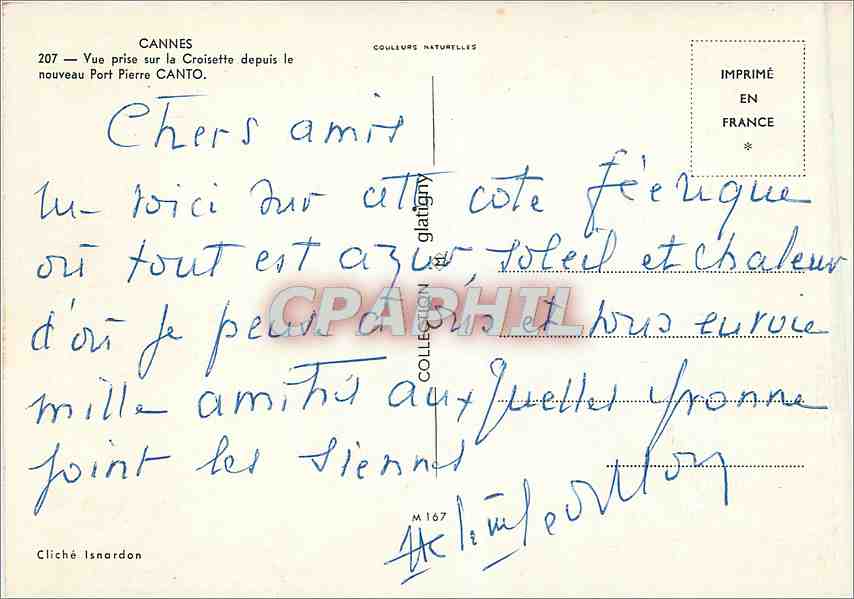 CANNES
207 — Vue prise sur la Croisette depuis le
nouveau Port Pierre CANTO.
COULEURS NATURELLES
IMPRIMÉ
EN
FRANCE
*
Chers amis
voici sur cette cote féerique
où tout est azur, soleil et chaleur
d'où je pense à vous et vous envoie
mille amitiés auxquelles Yvonne
joint les siennes
COLLECTION glatigny
CPAPHIL
M 167
Cliché Isnardon